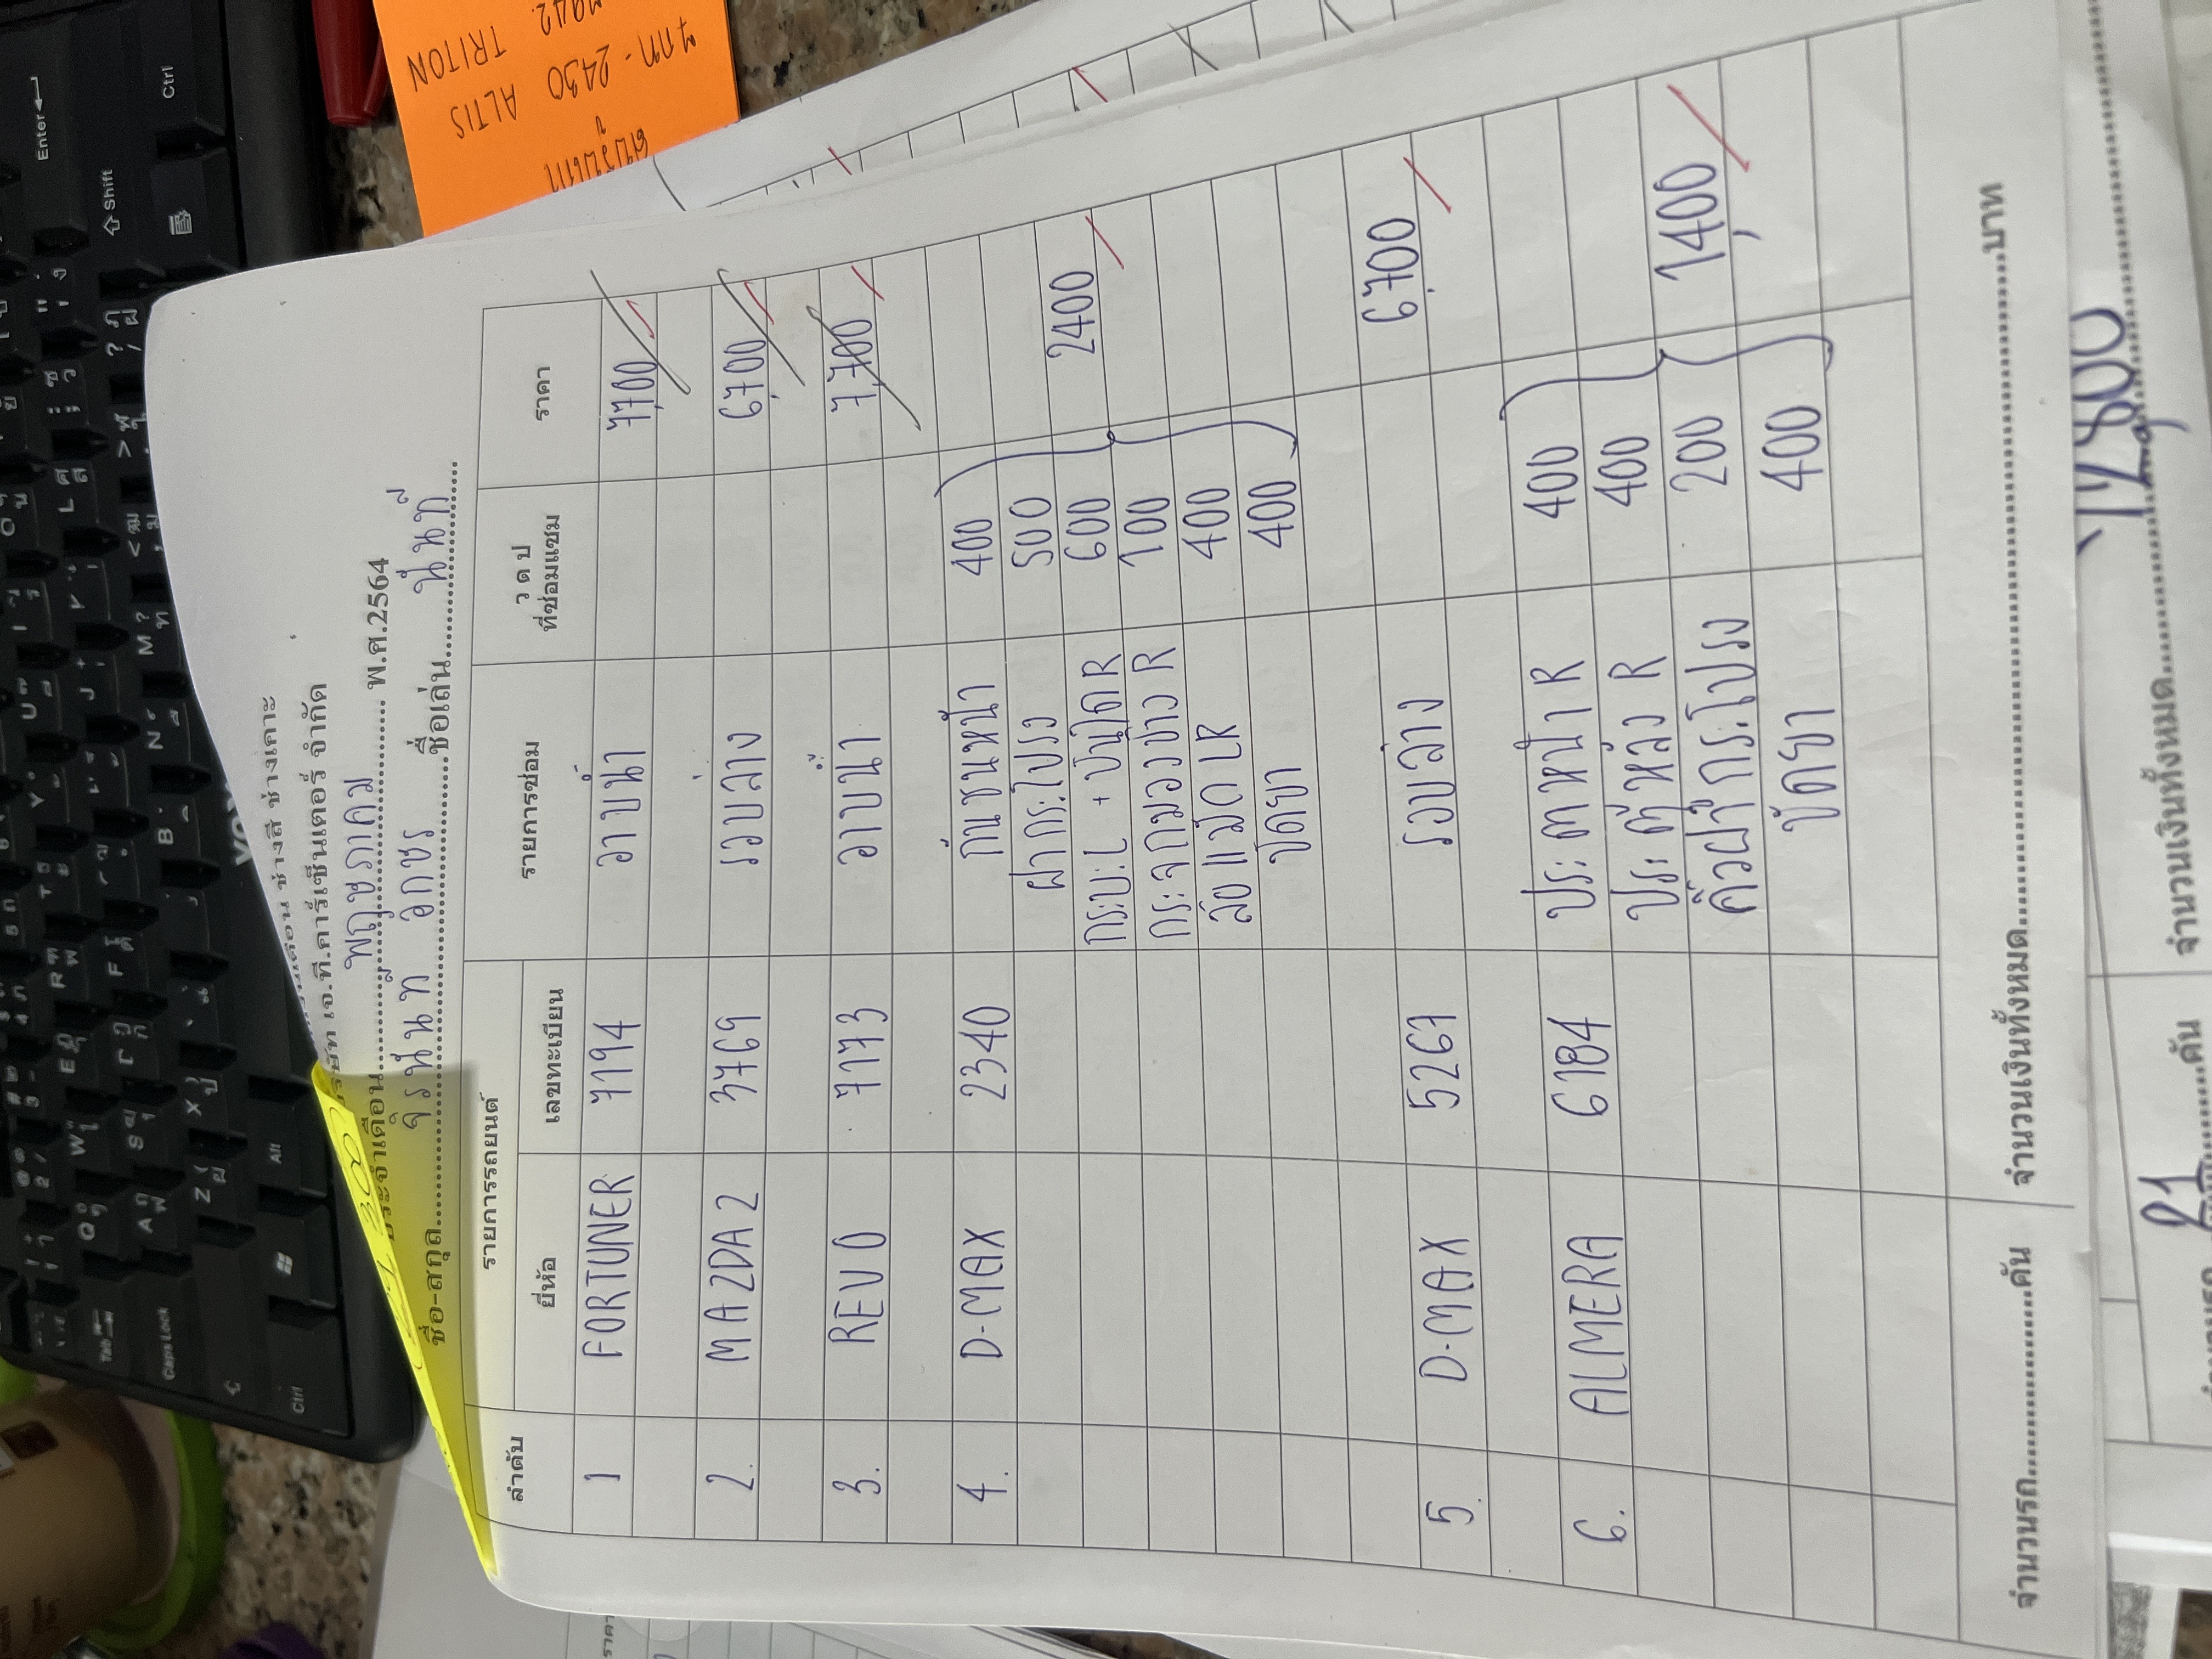 ช่างสี ช่างเคาะ
เจ.ที.คาร์เซ็นเตอร์ จำกัด
ประจำเดือน พฤษภาคม พ.ศ.2564
ชื่อ-สกุล จิรนันท อักษร ชื่อเล่น นันท์
ลำดับ รายการรถยนต์ รายการซ่อม ว ด ป ที่ซ่อมแซม ราคา
ยี่ห้อ เลขทะเบียน
1 FORTUNER 7194 อาบน้ำ 7,700
2. MAZDA 2 3769 รอบล่าง 6,700
3. REVO 7173 อาบน้ำ 7,700
4. D-MAX 2340 กันชนหน้า 400
ฝากระโปรง 500
กระบะL + บันไดR 600 2400
กระจกมองข้าง R 100
400
ขัดยา 400
5. D-MAX 5267 รอบล่าง 6,700
6. ALMERA 6184 ประตูหน้า R 400
ประตูหลัง R 400
คิ้วฝากระโปรง 200 1,400
ขัดยา 400
จำนวนรถ คัน จำนวนเงินทั้งหมด บาท
21 คัน จำนวนเงินทั้งหมด
ALTIS
2430
TRITON
Enter
Shift
Ctrl
Alt
Caps Lock
Tab
Ctrl
ราคา